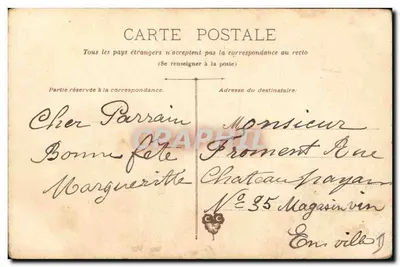 CARTE POSTALE
Tous les pays étrangers n'acceptent pas la correspondance au recto
(Se renseigner à la poste)
Partie réservée à la correspondance.
Adresse du destinataire.
Cher Parrain
Bonne fête
Marguerithe
Monsieur
Froment Rue
Chateau payan
No 35 Magasin vin
En ville